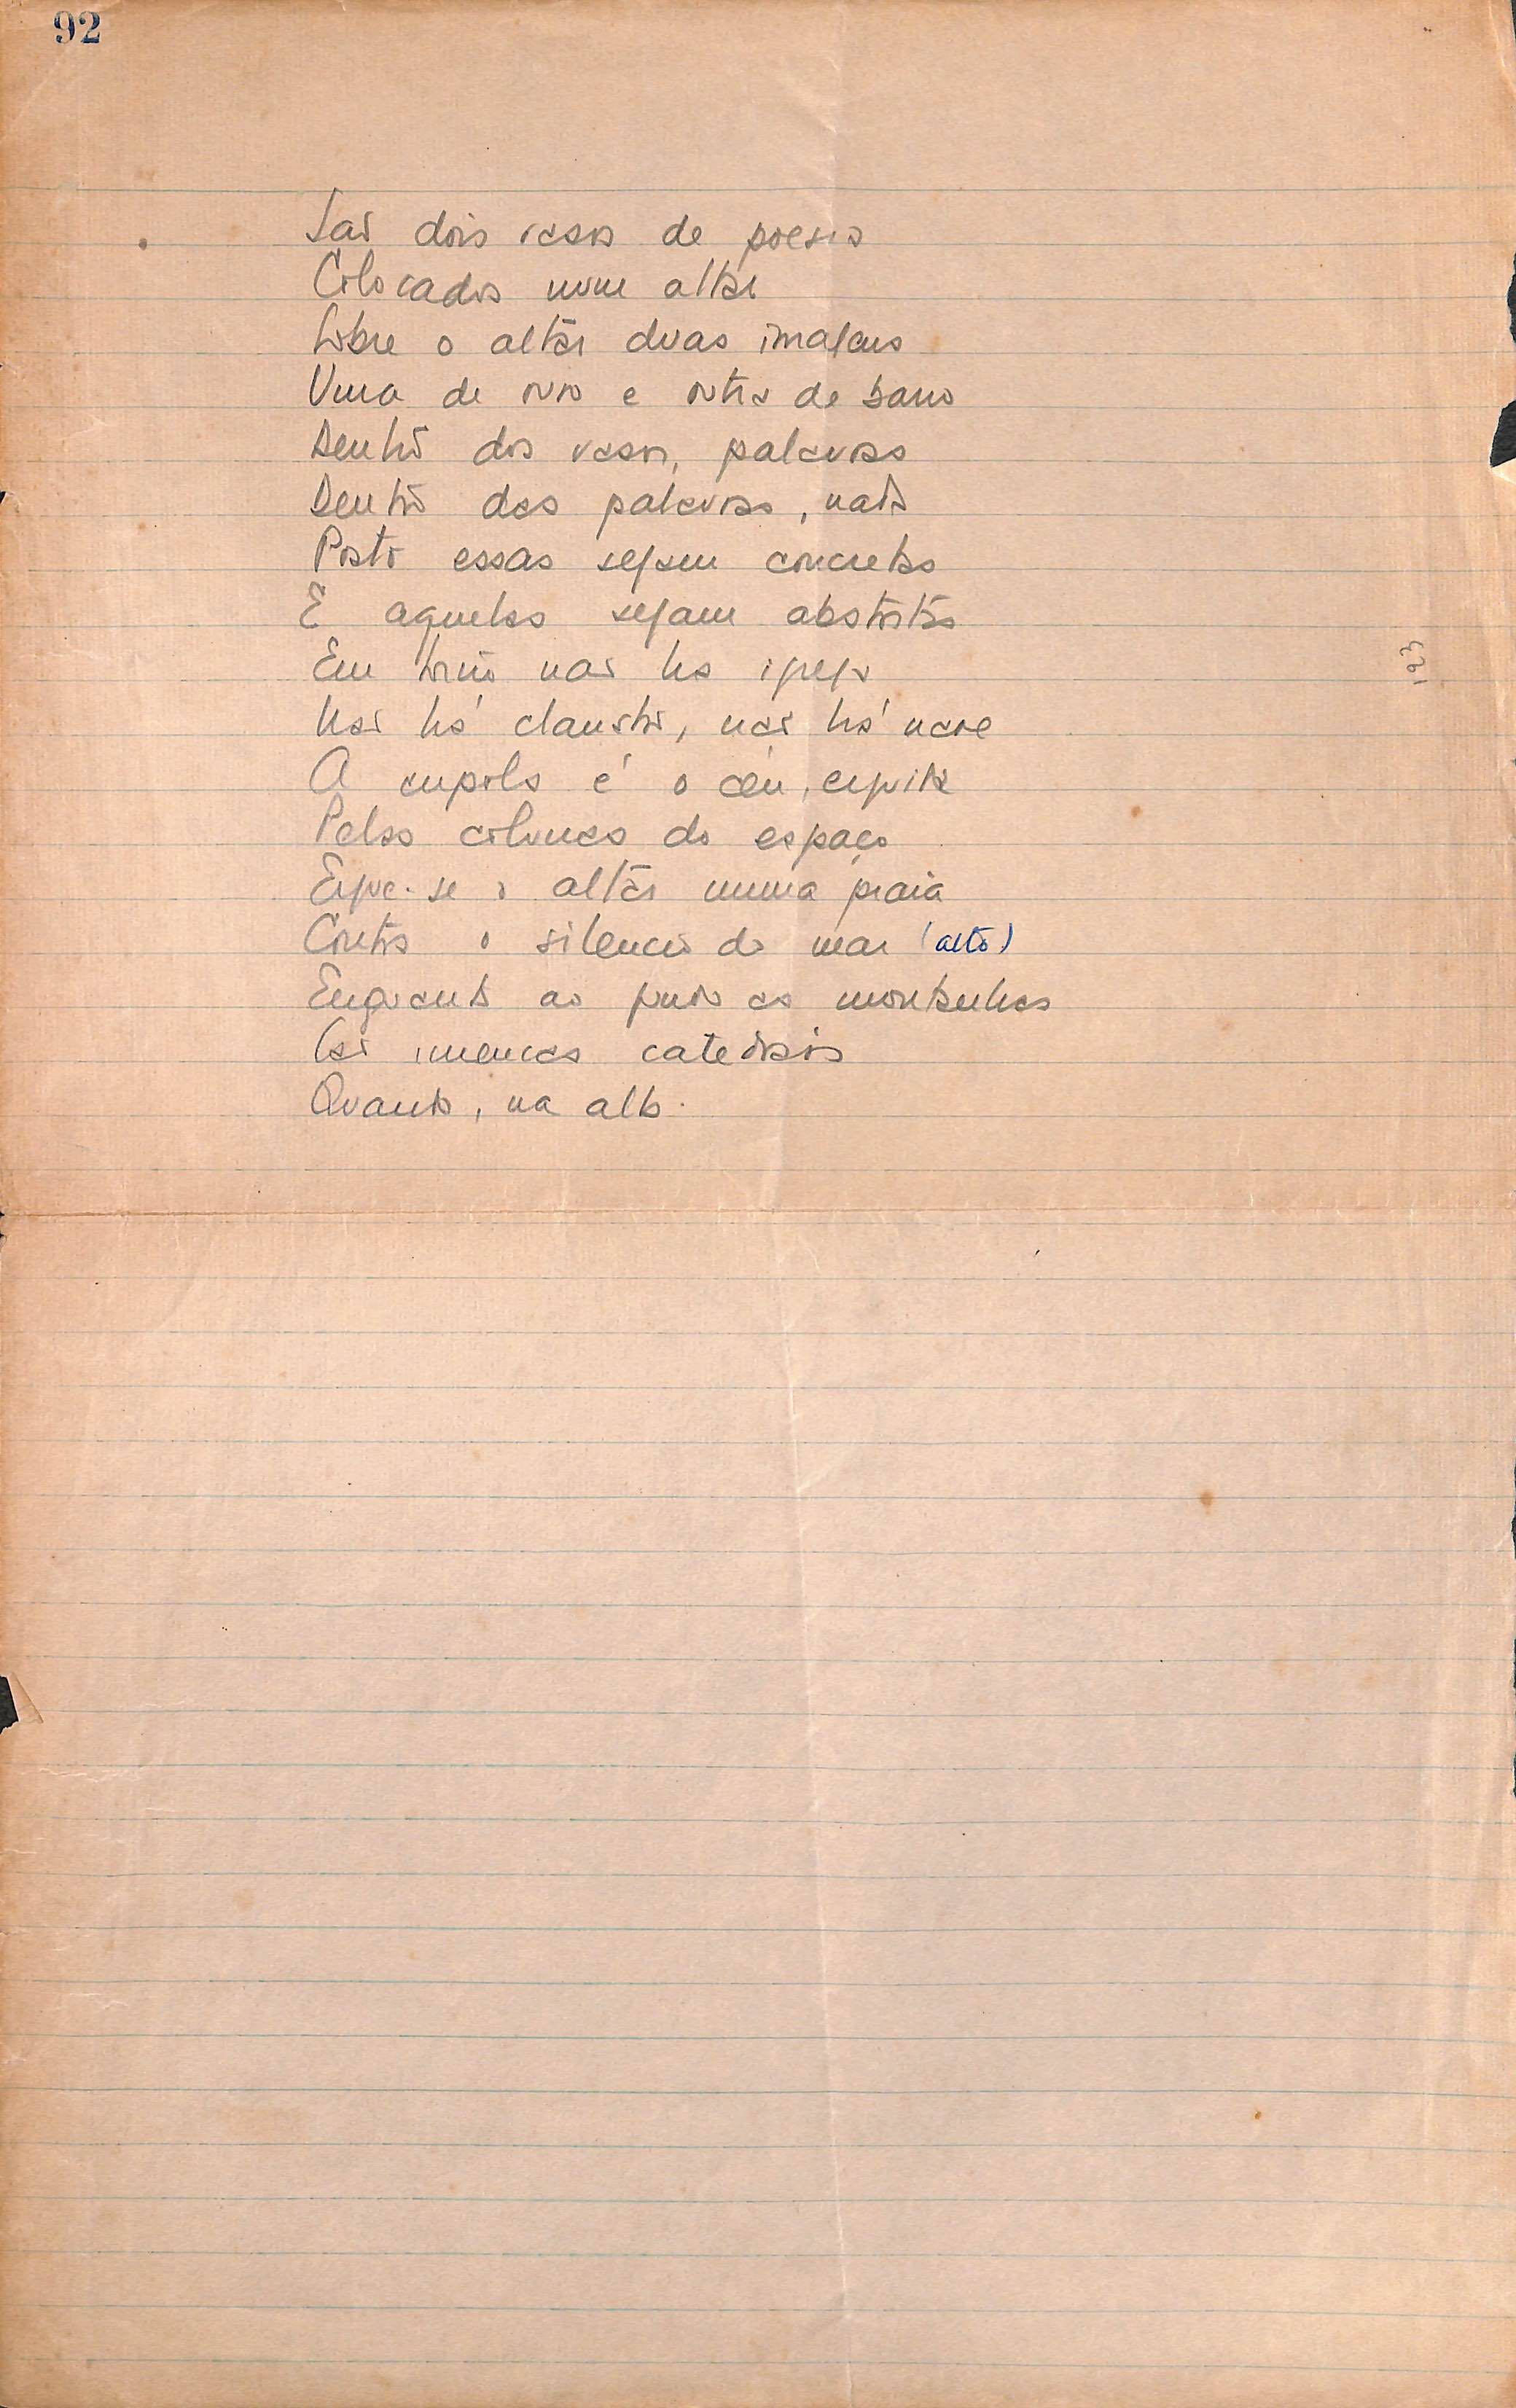 92
São dois vasos de poesia
Colocados num altar
Sobre o altar duas imagens
Uma de ouro e outra de barro
Dentro dos vasos, palavras
Dentro das palavras, nada
Posto essas sejam concretas
E aquelas sejam abstratas
Em torno não ha igreja
Não há claustro, não há nave
A cupola é o céu, erguida
Pelas colunas do espaço
Ergue-se o altar numa praia
Contra o silencio do mar (alto)
Enquanto ao fundo as montanhas
São imensas catedrais
Quando, na alta.
123